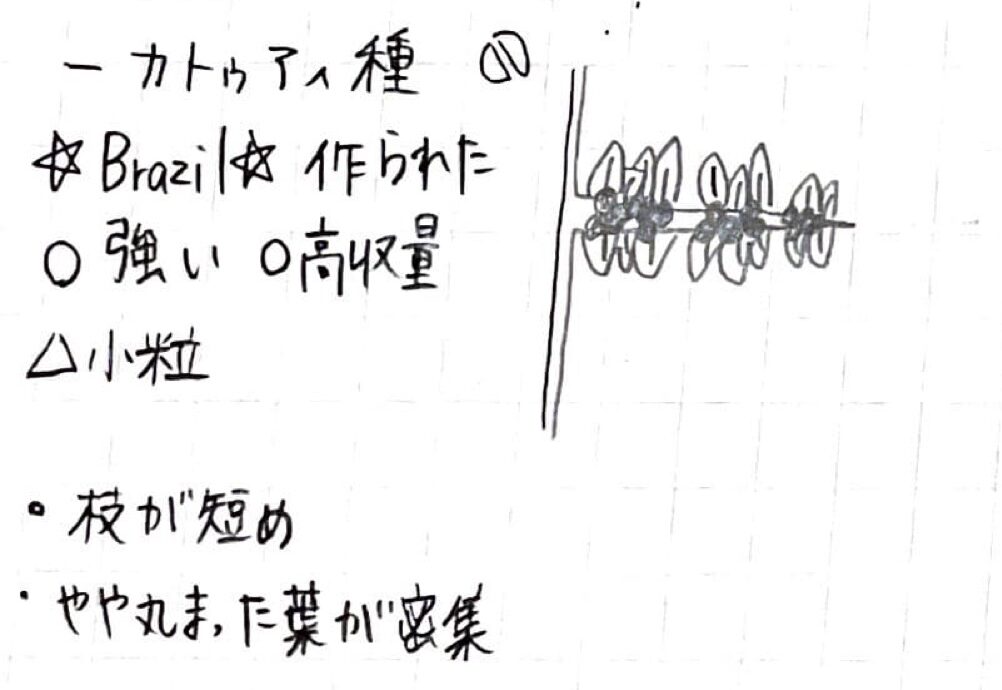 ー カトゥアイ種
☆Brazil☆ 作られた
○ 強い ○高収量
△小粒
・枝が短め
・やや丸まった葉が密集